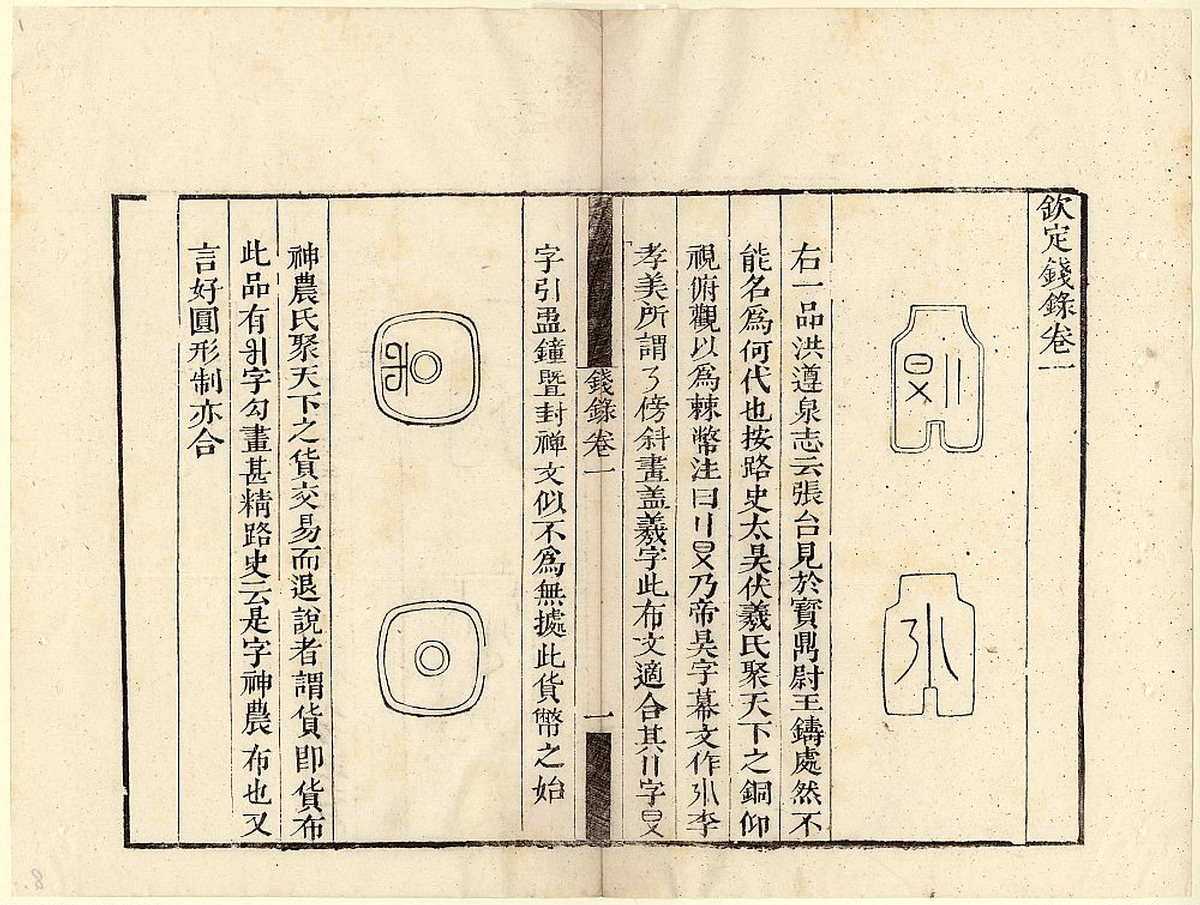 欽定錢錄卷一
右一品洪遵泉志云張台見於寶鼎尉王鑄處然不
能名爲何代也按路史太昊伏羲氏聚天下之銅仰
視俯觀以爲棘幣注曰乃帝昊字幕文作李
孝美所謂傍斜畫盖羲字此布文適合其字
錢錄卷一
一
字引盄鐘曁封禅文似不爲無據此貨幣之始
神農氏聚天下之貨交易而退說者謂貨卽貨布
此品有字勾畫甚精路史云是字神農布也又
言好圓形制亦合